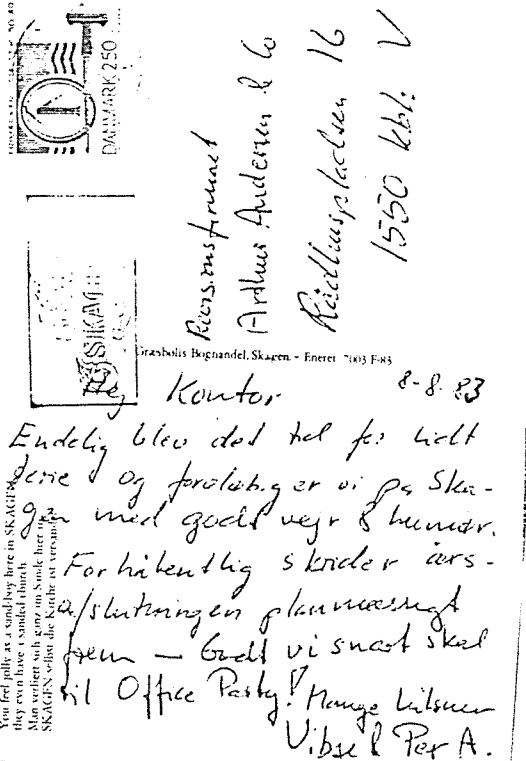 DANMARK 250
SKAGEN
Revisionsfirmaet
Arthur Andersen & Co
Rådhuspladsen 16
1550 Kbh. V
Græsholts Boghandel, Skagen. - Eneret 7003 F-83
8-8-83
Hej Kontor
Endelig blev det tid for lidt
ferie og foreløbig er vi på Ska-
gen med godt vejr & humør.
Forhåbentlig skrider års-
afslutningen planmæssigt
frem — Godt vi snart skal
til Office Party! Mange hilsner
Vibse & Per A.
You feel jolly as a sand-boy here in SKAGEN
they even have a sanded church.
Man verliert sich ganz im Sande hier in
SKAGEN selbst die Kirche ist versandet